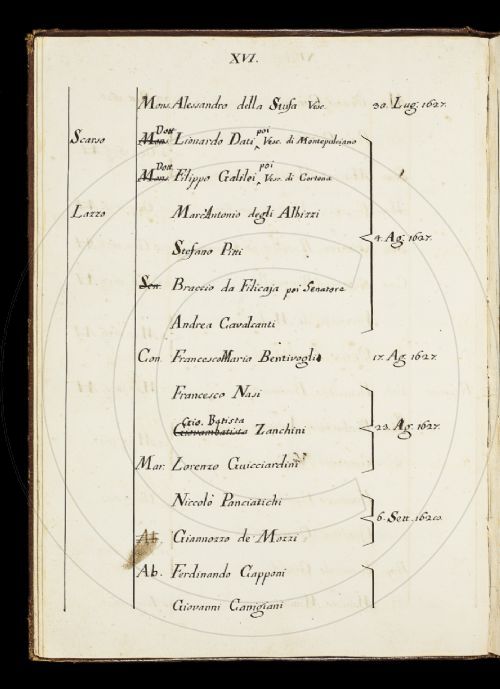 XVI.
Mons. Alessandro della Stufa Vesc. 30. Lug. 1627.
Scarso Mons. Dott. Lionardo Dati poi Vesc. di Montepulciano
Mons. Dott. Filippo Galilei poi Vesc. di Cortona
Lazzo Marc'Antonio degli Albizzi
4. Ag. 1627.
Stefano Pitti
Sen. Braccio da Filicaja poi Senatore
Andrea Cavalcanti
Con. Francesco Maria Bentivogli 17. Ag. 1627.
Francesco Nasi
Giovambatista Gio. Batista Zanchini 23. Ag. 1627.
Mar. Lorenzo Guicciardini
Niccolò Panciatichi
6. Sett.
Ab. Giannozzo de' Mozzi
Ab. Ferdinando Capponi
Giovanni Canigiani